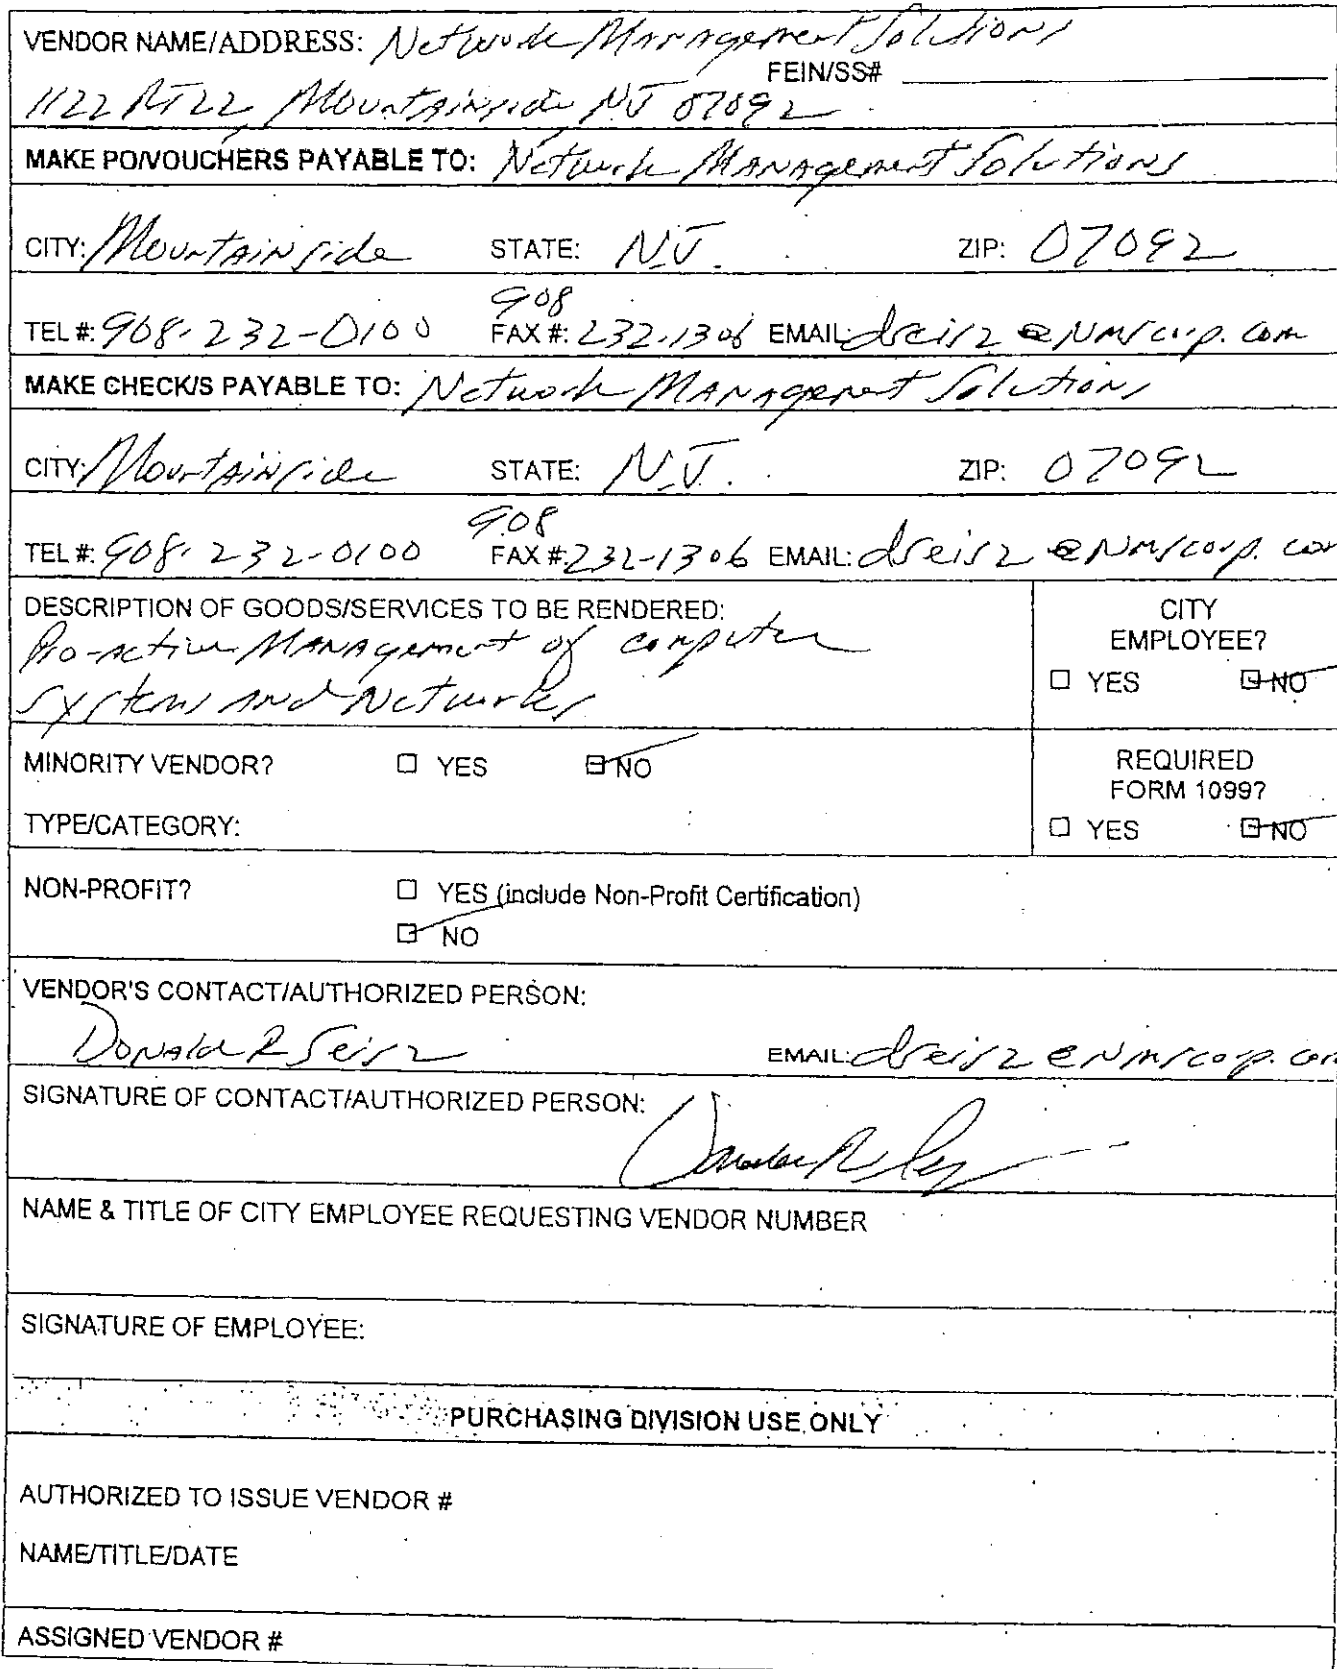 VENDOR NAME/ADDRESS: Network Management Solutions
FEIN/SS#
1122 RT 22, Mountainside, NJ 07092
MAKE PO/VOUCHERS PAYABLE TO: Network Management Solutions
CITY: Mountainside STATE: N.J. ZIP: 07092
TEL #: 908-232-0100 908 FAX #: 232-1306 EMAIL: dseisz@nmscorp.com
MAKE CHECK/S PAYABLE TO: Network Management Solutions
CITY: Mountainside STATE: N.J. ZIP: 07092
TEL #: 908-232-0100 908 FAX #: 232-1306 EMAIL: dseisz@nmscorp.com
DESCRIPTION OF GOODS/SERVICES TO BE RENDERED:
Pro-active Management of computer
systems and Networks
CITY
EMPLOYEE?
☐ YES ☐ NO
MINORITY VENDOR? ☐ YES ☐ NO
TYPE/CATEGORY:
REQUIRED
FORM 1099?
☐ YES ☐ NO
NON-PROFIT? ☐ YES (include Non-Profit Certification)
☐ NO
VENDOR'S CONTACT/AUTHORIZED PERSON:
Donald R Seisz EMAIL: dseisz@nmscorp.com
SIGNATURE OF CONTACT/AUTHORIZED PERSON:
NAME & TITLE OF CITY EMPLOYEE REQUESTING VENDOR NUMBER
SIGNATURE OF EMPLOYEE:
PURCHASING DIVISION USE ONLY
AUTHORIZED TO ISSUE VENDOR #
NAME/TITLE/DATE
ASSIGNED VENDOR #